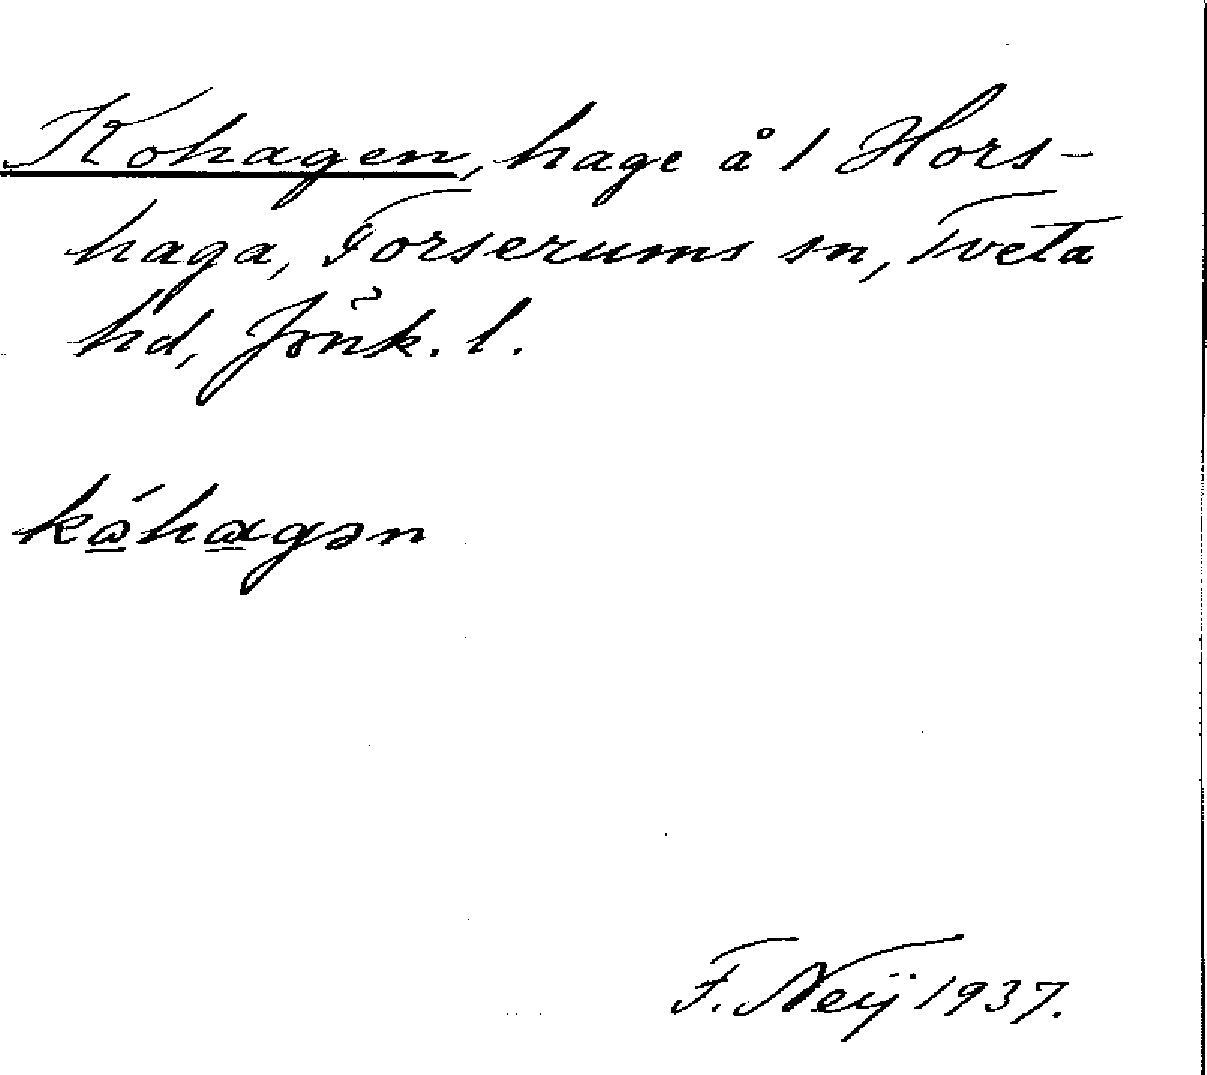 Kohagen, hage å 1 Hors-
haga, Forserums sn, Tveta
hd, Jönk. l.
kóhagən
F. Neij 1937.